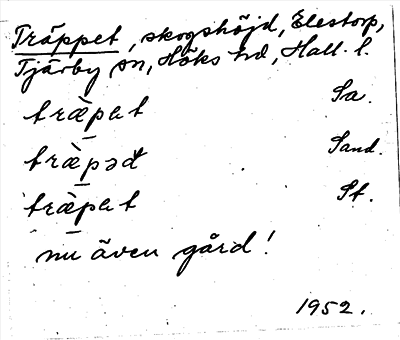 Träppet, skogshöjd, Elestorp,
Tjärby sn, Höks hd, Hall. l.
træ̀pət Sa.
træ̀pəđ Sand.
træ̀pət St.
nu även gård!
1952.